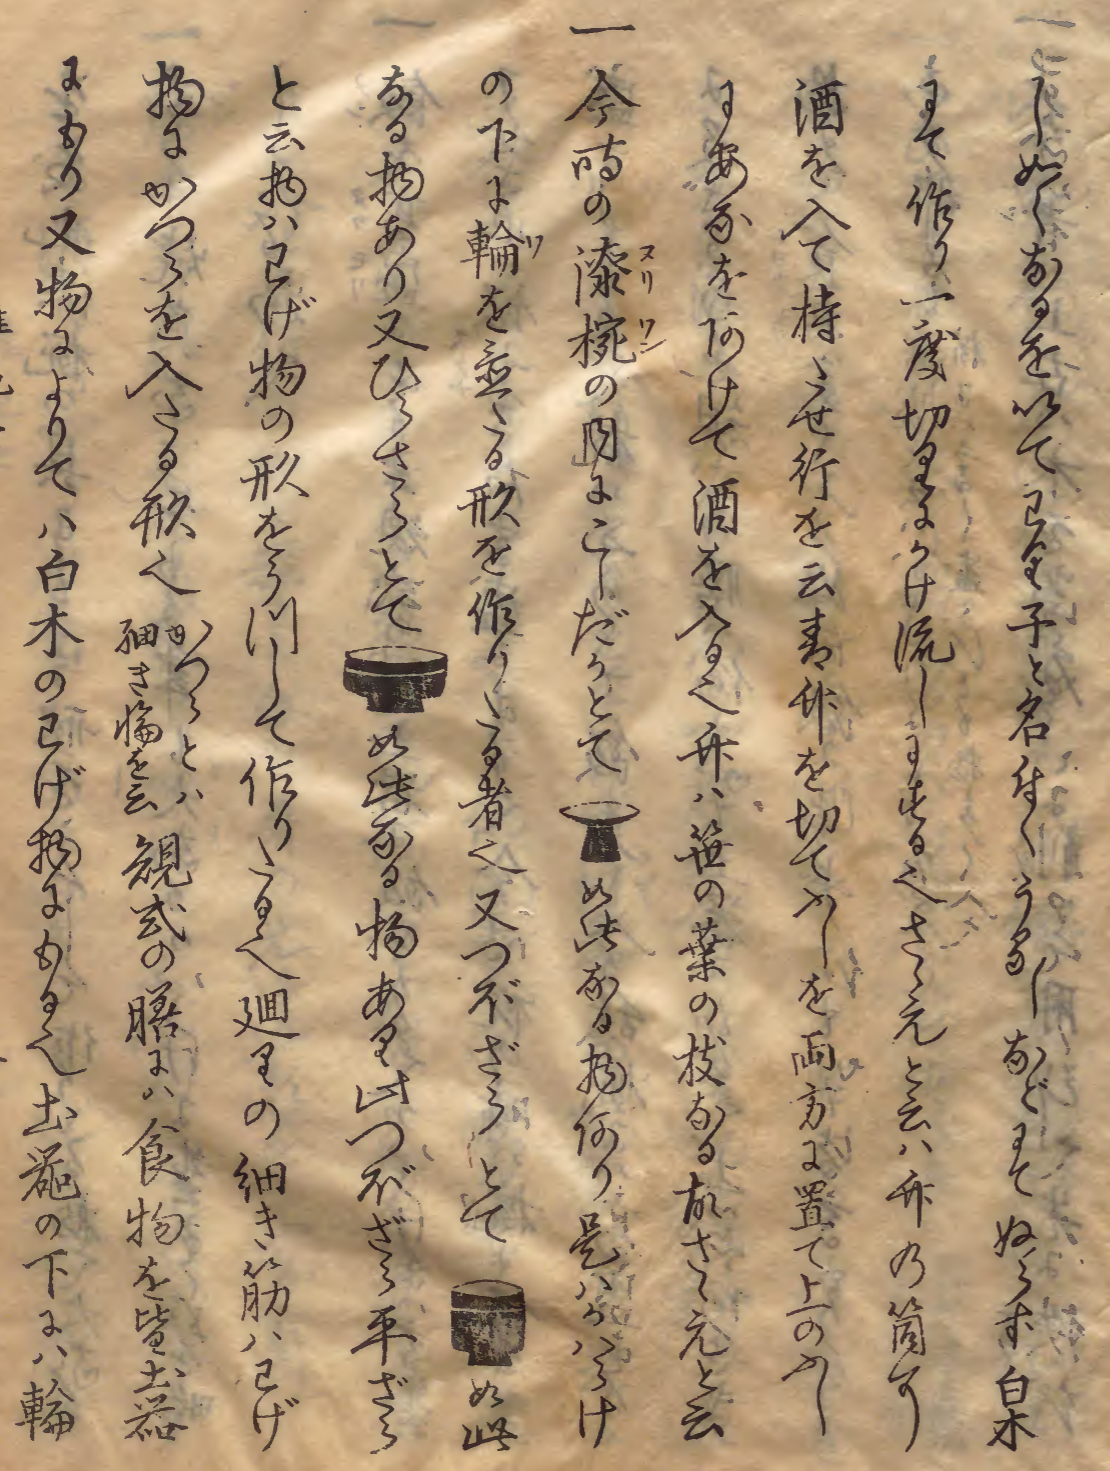 し如くなるを以てわり子と名付くうるしなどにてぬらず白木
にて作り一度切りにかけ流しにする也さゝえと云ハ竹の筒に
酒を入て持たせ行を云青竹を切てふしを両方に置て上のふし
にあなをあけて酒を入る也竹ハ笹の葉の枝なる故さゝえと云
一今時の漆椀の内にこしだかとて如此なる物あり是ハかハらけ
の下に輪を並たる形を作りたる者也又つぼざらとて如此
なる物あり又ひらさらとて如此なる物あり此つぼざら平ざら
と云物ハわげ物の形をうつして作りたる也廻りの細き筋ハわげ
物にかつらを入たる形也かつらとハ細き輪を云規式の膳にハ食物を皆土器
にもり又物によりてハ白木のわげ物にもる也土器の下にハ輪